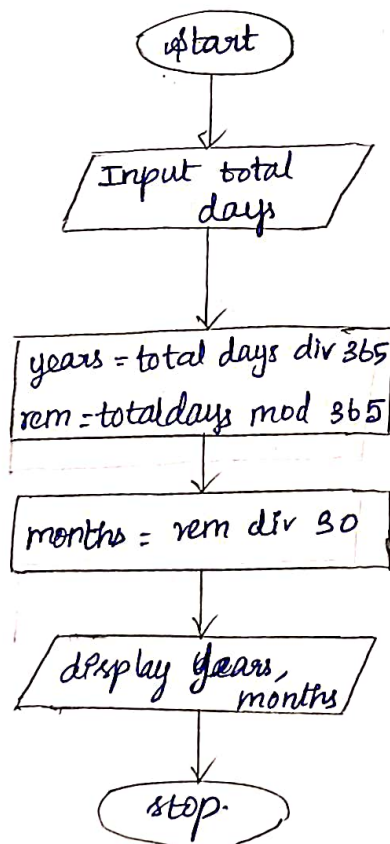 Start
Input total
days
years = total days div 365
rem = totaldays mod 365
months = rem div 30
display years,
months
stop.